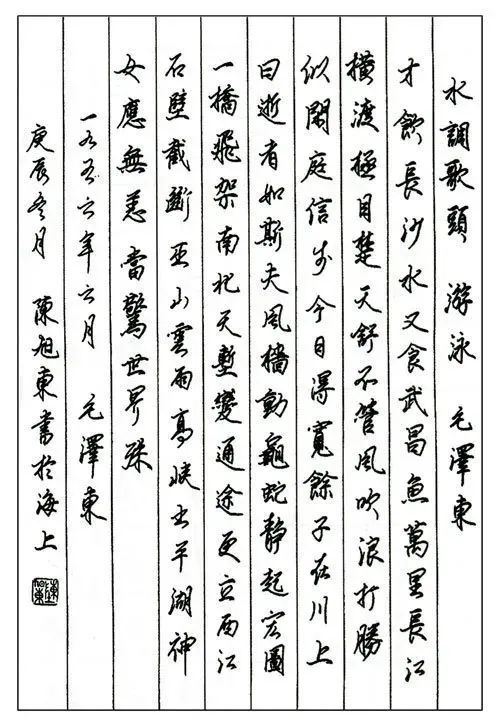 水調歌頭 游泳 毛澤東
才飲長沙水又食武昌魚萬里長江
橫渡極目楚天舒不管風吹浪打勝
似閑庭信步今日得寬餘子在川上
曰逝者如斯夫風檣動龜蛇静起宏圖
一橋飛架南北天塹變通途更立西江
石壁截斷巫山雲雨高峽出平湖神
女應無恙當驚世界殊
一九五六年六月 毛澤東
庚辰冬月 陳旭東書於海上